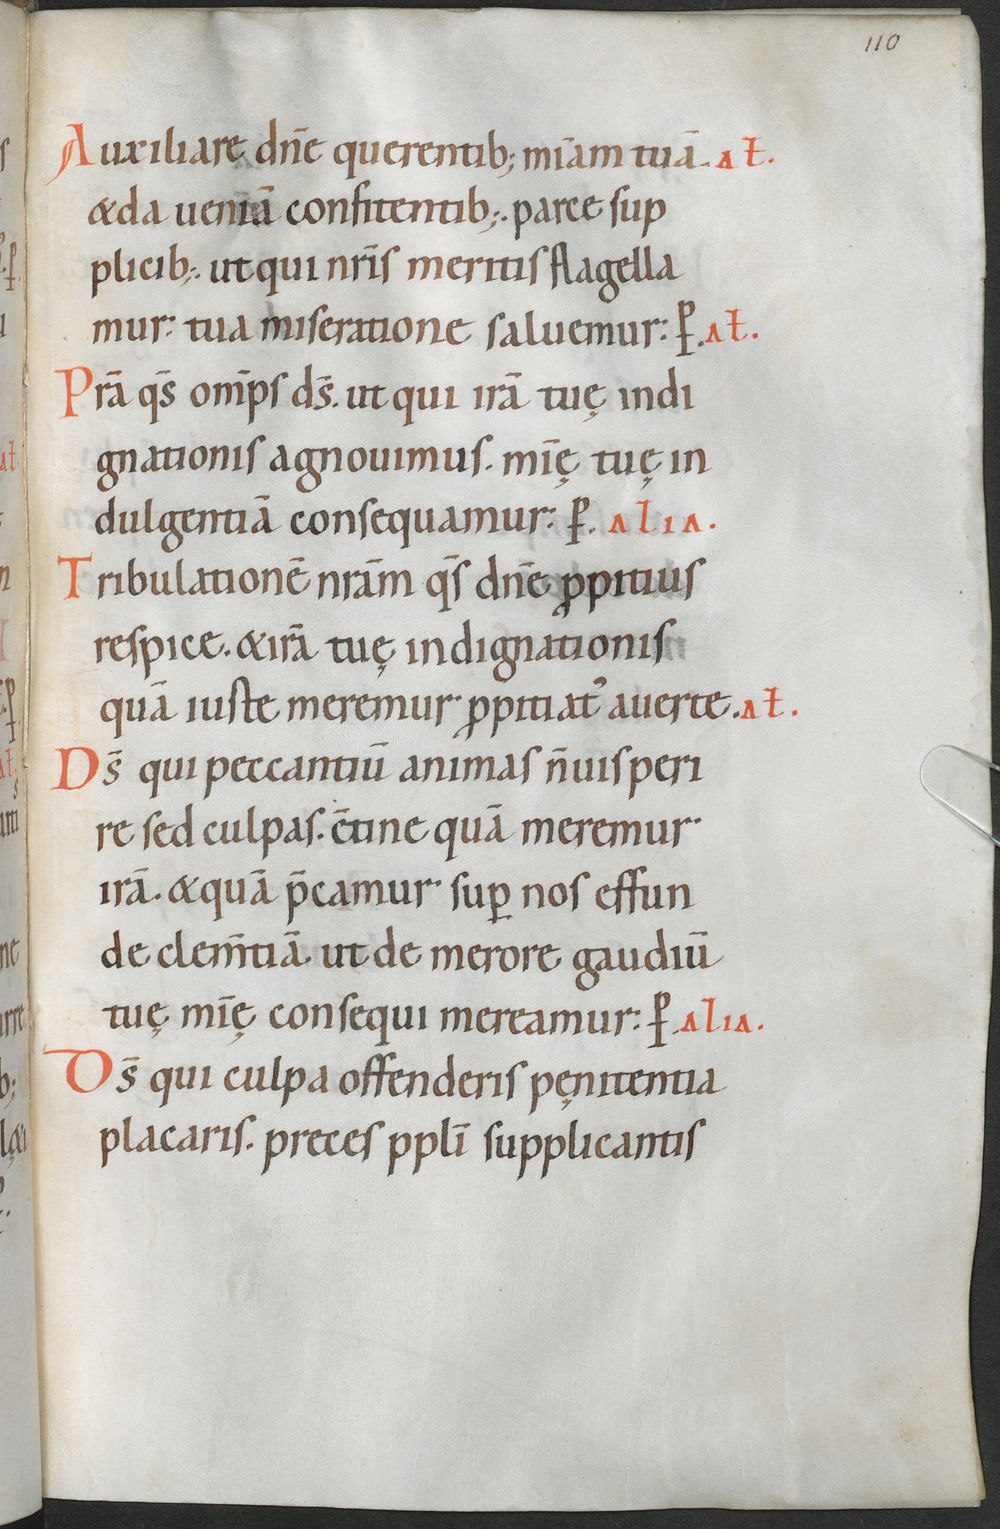 110
Auxiliare dñe querentib; mĩam tuã. at̃.
&da ueniã confitentib;. parce sup
plicib;. ut qui nr̃is meritis flagella
mur: tua miseratione saluemur: ꝑ. at̃.
Prã qs̃ omp̃s ds̃. ut qui irã tuę indi
gnationis agnouimus. mĩę tuę in
dulgentiã consequamur: ꝑ. alia.
Tribulationẽ nrãm qs̃ dñe ꝓpitius
respice. & irã tuę indignationis
quã iuste meremur ꝓpitiat᾿ auerte. at̃.
Ds̃ qui peccantiũ animas ñ uis peri
re sed culpas. c̃tine quã meremur
irã. & quã p̃camur suꝑ nos effun
de clem̃tiã. ut de merore gaudiũ
tuę mĩę consequi mereamur: ꝑ. alia.
Ds̃ qui culpa offenderis pęnitentia
placaris. preces pplĩ supplicantis